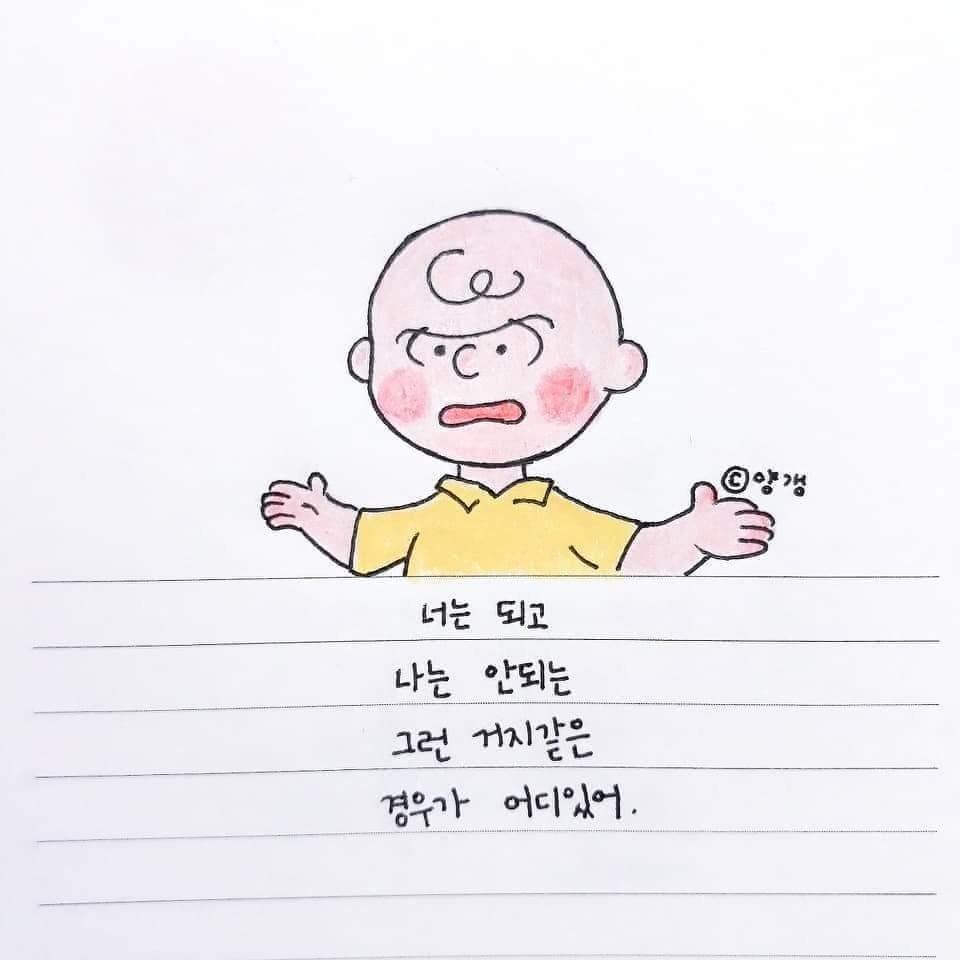 ©양갱
너는 되고
나는 안되는
그런 거지같은
경우가 어디있어.